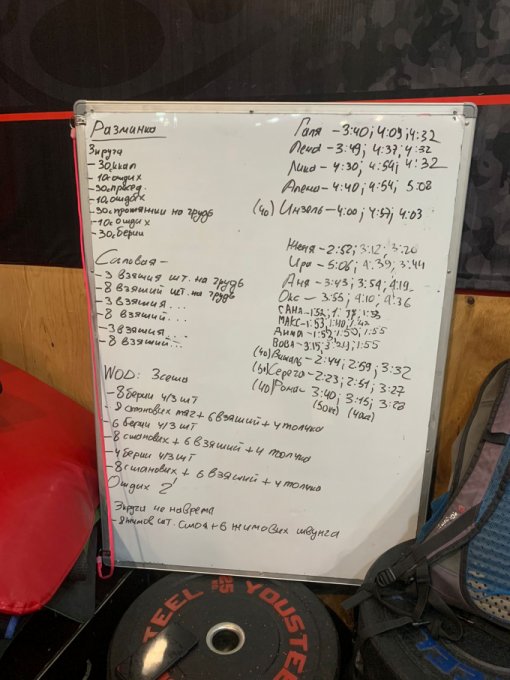 Разминка
3 круга
- 30с. ккал
- 10с отдих
- 30с присед.
- 10с отдых
- 30с протяжки на грудь
- 10с отдих
- 30с берпи
Силовая -
- 3 взятия шт. на грудь
- 8 взятий шт. на грудь
- 3 взятия ...
- 8 взятий...
- 3 взятия...
- 8 взятий...
WOD: 3 сета
- 8 берпи ч/з шт
- 8 станових тяг + 6 взятий + 4 толчка
- 6 берпи ч/з шт
- 8 станових + 6 взятий + 4 толчка
- 4 берпи ч/з шт
- 8 станових + 6 взятий + 4 толчка
Отдих 2'
3 круга не на время
- 8 жимов шт. стоя + 6 жимових швунга
Галя - 3:40; 4:09; 4:32
Лена - 3:49; 4:37; 4:32
Лика - 4:30; 4:54; 4:32
Алена - 4:40; 4:54; 5:08
(40) Инзель - 4:00; 4:57; 4:03
Женя - 2:52; 3:12; 3:20
Ира - 5:06; 4:39; 3:44
Аня - 3:43; 3:54; 4:19
Окс - 3:55; 4:10; 4:36
САНА - 1:52; 1: ; 1:53
МАКС - 1:53; 1:40; 1:42
Дима - 1:52; 1:50; 1:55
ВОВА - 3:15; 3:21; 1:55
(40) Виталь - 2:44; 2:59; 3:32
Серёга - 2:23; 2:51; 3:27
(40) Рома - 3:40; 3:15; 3:28
(50кг) (40кг)
STEEL 25 YOUSTEEL